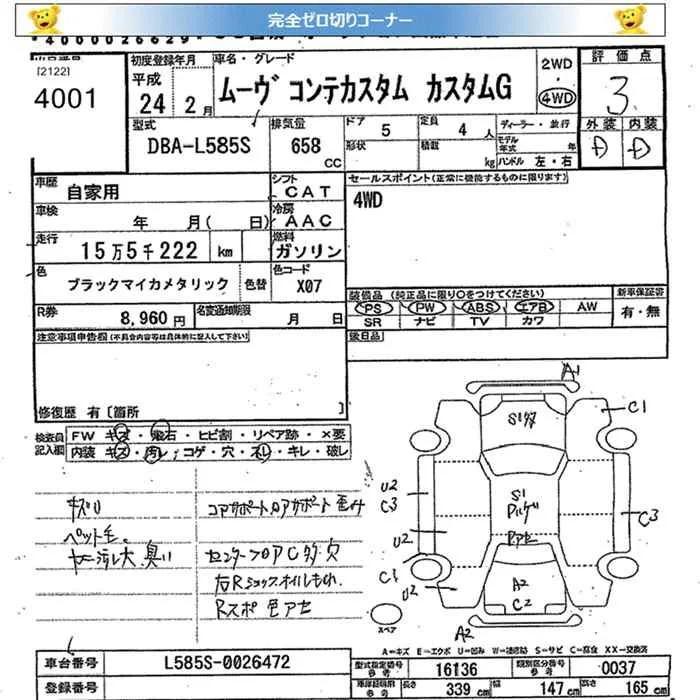 完全ゼロ切りコーナー
出品番号
[2122]
4001
初度登録年月
平成
24年 2月
車名・グレード
ムーヴ コンテカスタム カスタムG
2WD
・
4WD
評価点
3
外装 内装
D D
型式
DBA-L585S
排気量
658
CC
ドア 5
形状
定員 4 人
積載 kg
ディーラー・並行
モデル年式 年
ハンドル 左・右
車歴 自家用
シフト CAT
車検 年 月( 日)
冷房 AAC
走行 15万5千222 km
燃料 ガソリン
色 ブラックマイカメタリック 色替
色コード X07
R券 8,960 円
名変通知期限 月 日
セールスポイント(正常に機能するものに限ります)
4WD
装備品(純正品に限り○をつけてください)
PS PW ABS エアB AW
SR ナビ TV カワ
新車保証書
有・無
後日品
注意事項申告欄(不具合内容等は具体的に記入して下さい)
修復歴 有〔箇所 〕
検査員記入欄
FW キズ・飛石・ヒビ割・リペア跡・×要
内装 キズ・汚レ・コゲ・穴・スレ・キレ・破レ
キズU
ペット毛
臭い
コアサポート 歪み
センターフロアC 多 穴
右Rショックオイルもれ
Rスポ 色アセ
A1
C1
U2
C3
U2
C1
U2
C3
S1
A2
C2
A2
スペア
A=キズ E=エクボ U=凹み W=補修跡 S=サビ C=腐食 XX=交換済
車台番号 L585S-0026472
登録番号
型式指定番号 参考 16136
類別区分番号 参考 0037
長さ 339 cm
幅 147 cm
高さ 165 cm